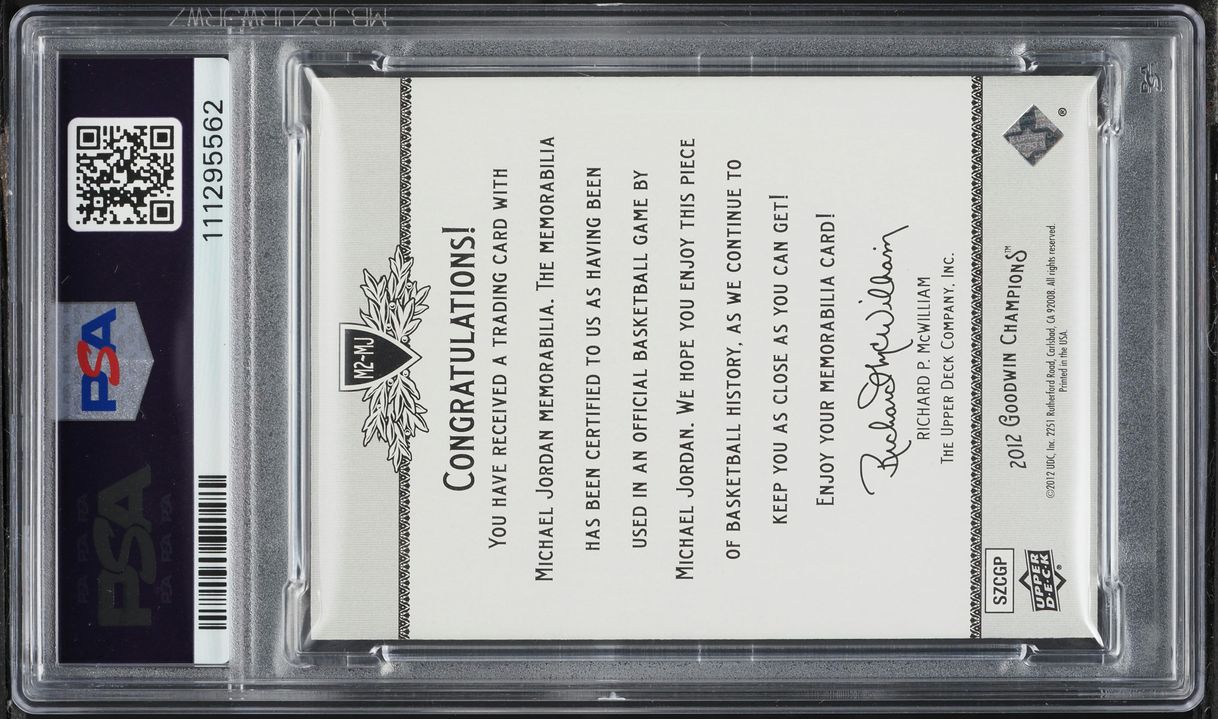 PSA
111295562
PSA
M2-MJ
CONGRATULATIONS!
YOU HAVE RECEIVED A TRADING CARD WITH
MICHAEL JORDAN MEMORABILIA. THE MEMORABILIA
HAS BEEN CERTIFIED TO US AS HAVING BEEN
USED IN AN OFFICIAL BASKETBALL GAME BY
MICHAEL JORDAN. WE HOPE YOU ENJOY THIS PIECE
OF BASKETBALL HISTORY, AS WE CONTINUE TO
KEEP YOU AS CLOSE AS YOU CAN GET!
ENJOY YOUR MEMORABILIA CARD!
Richard McWilliam
RICHARD P. MCWILLIAM
THE UPPER DECK COMPANY, INC.
SZCGP
2012 GOODWIN CHAMPIONS™
UPPER DECK®
©2012 UDC, Inc. 2251 Rutherford Road, Carlsbad, CA 92008. All rights reserved.
Printed in the USA.
®
PSA